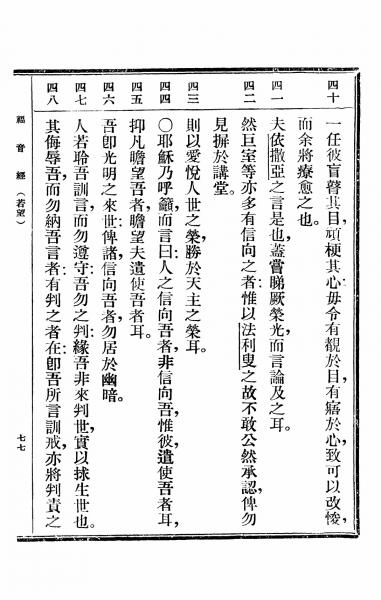 四十 一任彼盲瞽其目，頑梗其心，毋令有覩於目，有寤於心，致可以改悛，
而余將療愈之也。
四一 夫依撒亞之言是也，蓋嘗睇厥榮光，而言論及之耳。
四二 然巨室等亦多有信向之者；惟以法利叟之故，不敢公然承認，俾勿
見摒於講堂。
四三 則以愛悅人世之榮，勝於天主之榮耳。
四四 〇耶穌乃呼籲而言曰：人之信向吾者，非信向吾，惟彼遣使吾者耳，
四五 抑凡瞻望吾者，瞻望夫遣使吾者耳。
四六 吾卽光明之來世，俾諸信向吾者，勿居於幽暗。
四七 人若聆吾訓言，而勿遵守，吾勿之判；緣吾非來判世，實以拯生世也。
四八 其侮辱吾，而勿納吾言者，有判之者在：卽吾所言訓戒，亦將判責之
福音經（若望）
七七